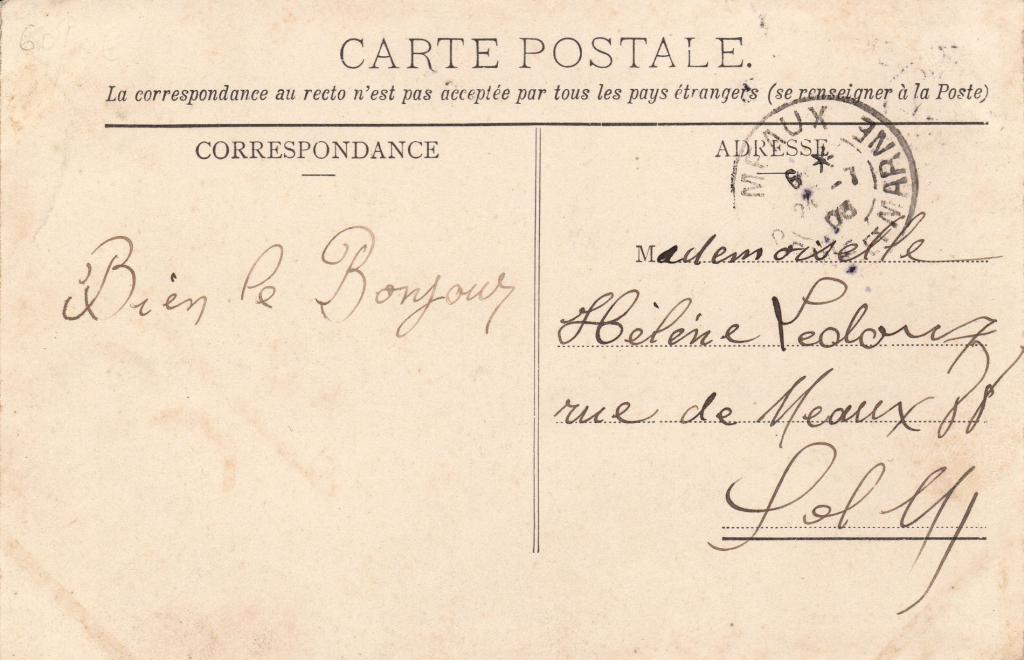 60
CARTE POSTALE.
La correspondance au recto n'est pas acceptée par tous les pays étrangers (se renseigner à la Poste)
CORRESPONDANCE
ADRESSE
MEAUX
MARNE
03
Bien le Bonjour
Mademoiselle
Hélène Ledoux
rue de Meaux